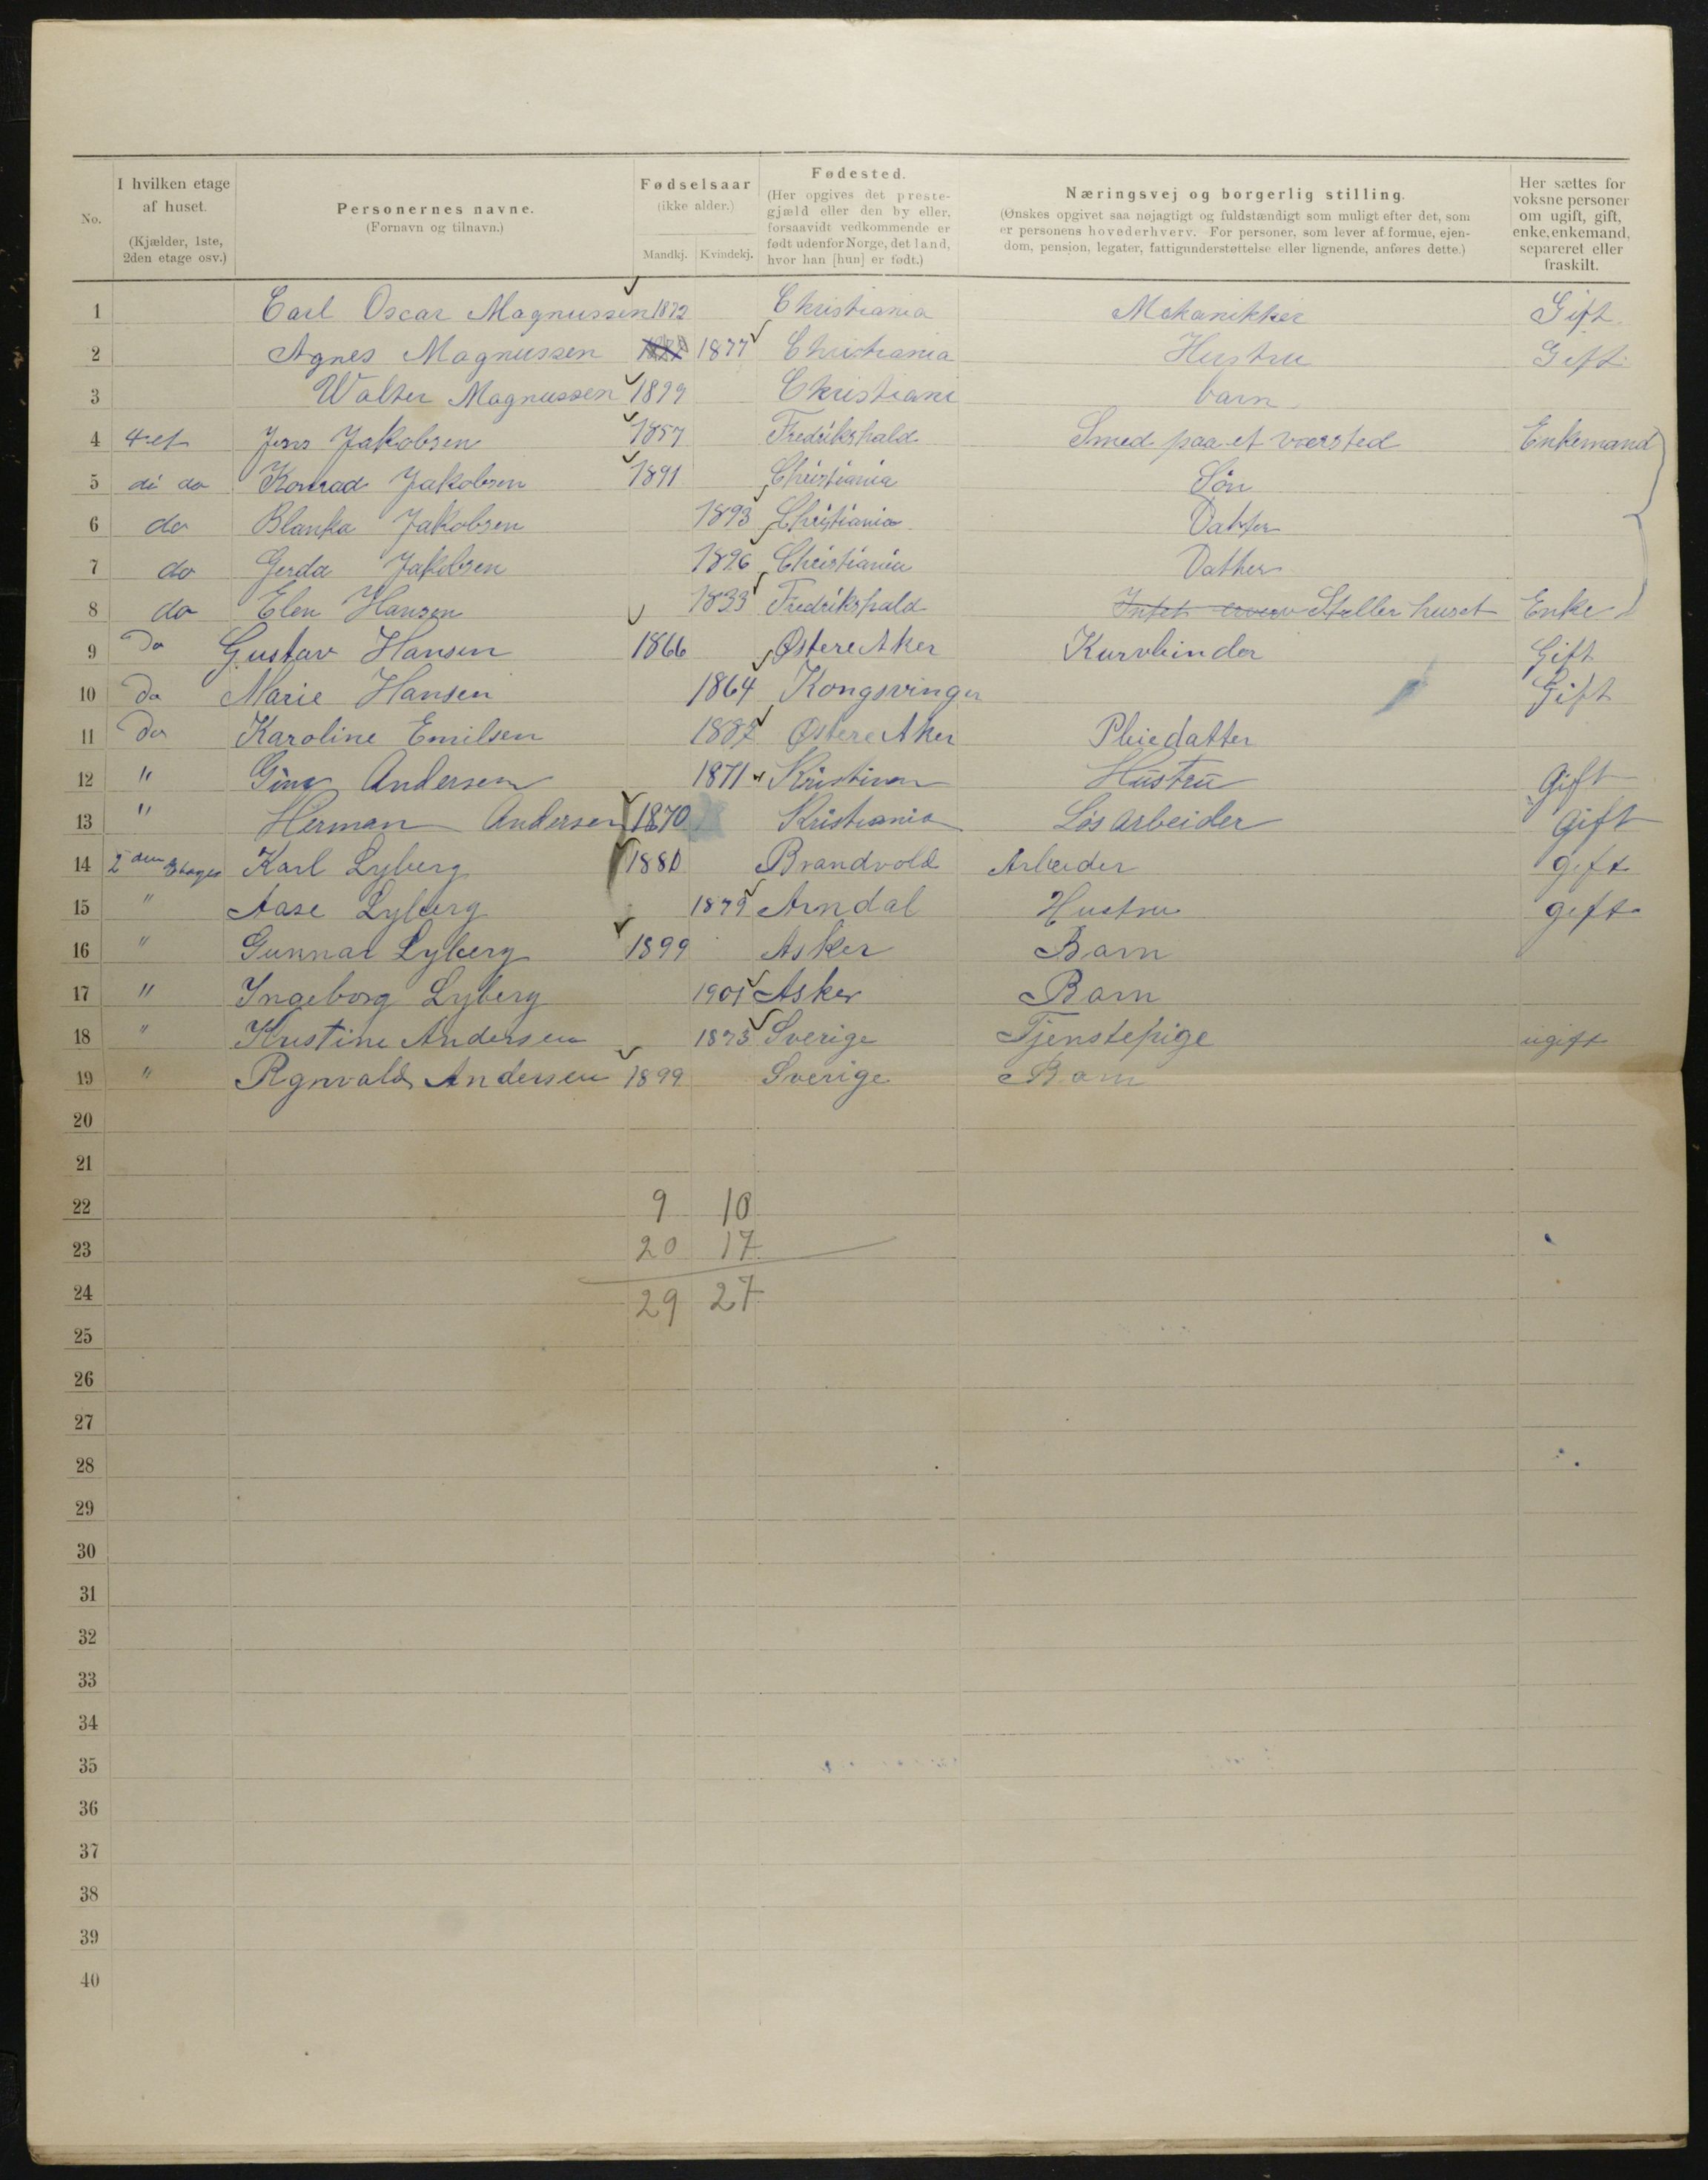 No. | I hvilken etage af huset. (Kjælder, 1ste, 2den etage osv.) | Personernes navne. (Fornavn og tilnavn.) | Fødselsaar (ikke alder.) Mandkj. Kvindekj. | Fødested. (Her opgives det prestegjæld eller den by eller, forsaavidt vedkommende er født udenfor Norge, det land, hvor han [hun] er født.) | Næringsvej og borgerlig stilling. (Ønskes opgivet saa nøjagtigt og fuldstændigt som muligt efter det, som er personens hovederhverv. For personer, som lever af formue, ejendom, pension, legater, fattigunderstøttelse eller lignende, anføres dette.) | Her sættes for voksne personer om ugift, gift, enke, enkemand, separeret eller fraskilt.
1 Carl Oscar Magnussen 1872 Christiania Mekanikker Gift
2 Agnes Magnussen 1877 Christiania Hustru Gift
3 Walter Magnussen 1899 Christiani barn
4 4 et Jens Jakobsen 1857 Fredrikshald Smed paa et værsted Enkemand
5 di do Konrad Jakobsen 1891 Christiania Søn
6 do Blanka Jakobsen 1893 Christiania Datter
7 do Gerda Jakobsen 1896 Christiania Datter
8 do Elen Hansen 1833 Fredrikshald Intet erverv Steller huset Enke
9 Do Gustav Hansen 1866 Østere Aker Kurvbinder Gift
10 Do Marie Hansen 1864 Kongsvinger Gift
11 Do Karoline Emilsen 1887 Østere Aker Pleiedatter
12 " Gina Andersen 1871 Kristiania Hustru Gift
13 " Herman Andersen 1870 Kristiania Løs Arbeider Gift
14 2den Etages Karl Lyberg 1880 Brandvold Arbeider gift
15 " Aase Lyberg 1879 Arndal Hustru gift
16 " Gunnar Lyberg 1899 Asker Barn
17 " Ingeborg Lyberg 1901 Asker Barn
18 " Kristine Andersen 1873 Sverige Tjenstepige ugift
19 " Rgnvald Andersen 1899 Sverige Barn
20
21
22 9 10
23 20 17
24 29 27
25
26
27
28
29
30
31
32
33
34
35
36
37
38
39
40